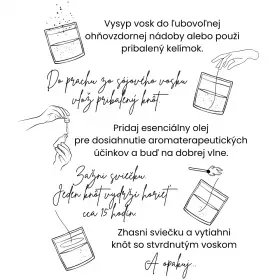 Vysyp vosk do ľubovoľnej
ohňovzdornej nádoby alebo použi
pribalený kelímok.
Do prachu zo sójového vosku
vlož pribalený knôt.
Pridaj esenciálny olej
pre dosiahnutie aromaterapeutických
účinkov a buď na dobrej vlne.
Zažni sviečku
Jeden knôt vydrží horieť
cca 15 hodín.
Zhasni sviečku a vytiahni
knôt so stvrdnutým voskom
A opakuj...